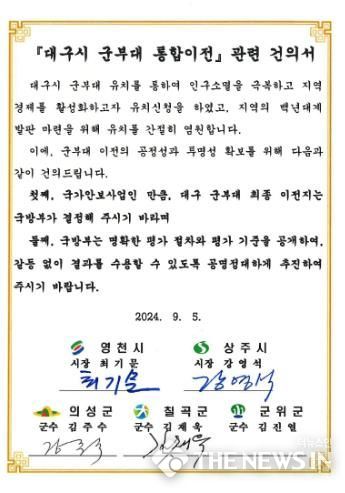 『대구시 군부대 통합이전』 관련 건의서
대구시 군부대 유치를 통하여 인구소멸을 극복하고 지역
경제를 활성화하고자 유치신청을 하였고, 지역의 백년대계
발판 마련을 위해 유치를 간절히 염원합니다.
이에, 군부대 이전의 공정성과 투명성 확보를 위해 다음과
같이 건의드립니다.
첫째, 국가안보사업인 만큼, 대구 군부대 최종 이전지는
국방부가 결정해 주시기 바라며
둘째, 국방부는 명확한 평가 절차와 평가 기준을 공개하여,
갈등 없이 결과를 수용할 수 있도록 공명정대하게 추진하여
주시기 바랍니다.
2024. 9. 5.
영천시 상주시
시장 최기문 시장 강영석
최기문 강영석
의성군 칠곡군 군위군
군수 김주수 군수 김재욱 군수 김진열
더뉴스인
THE NEWS IN